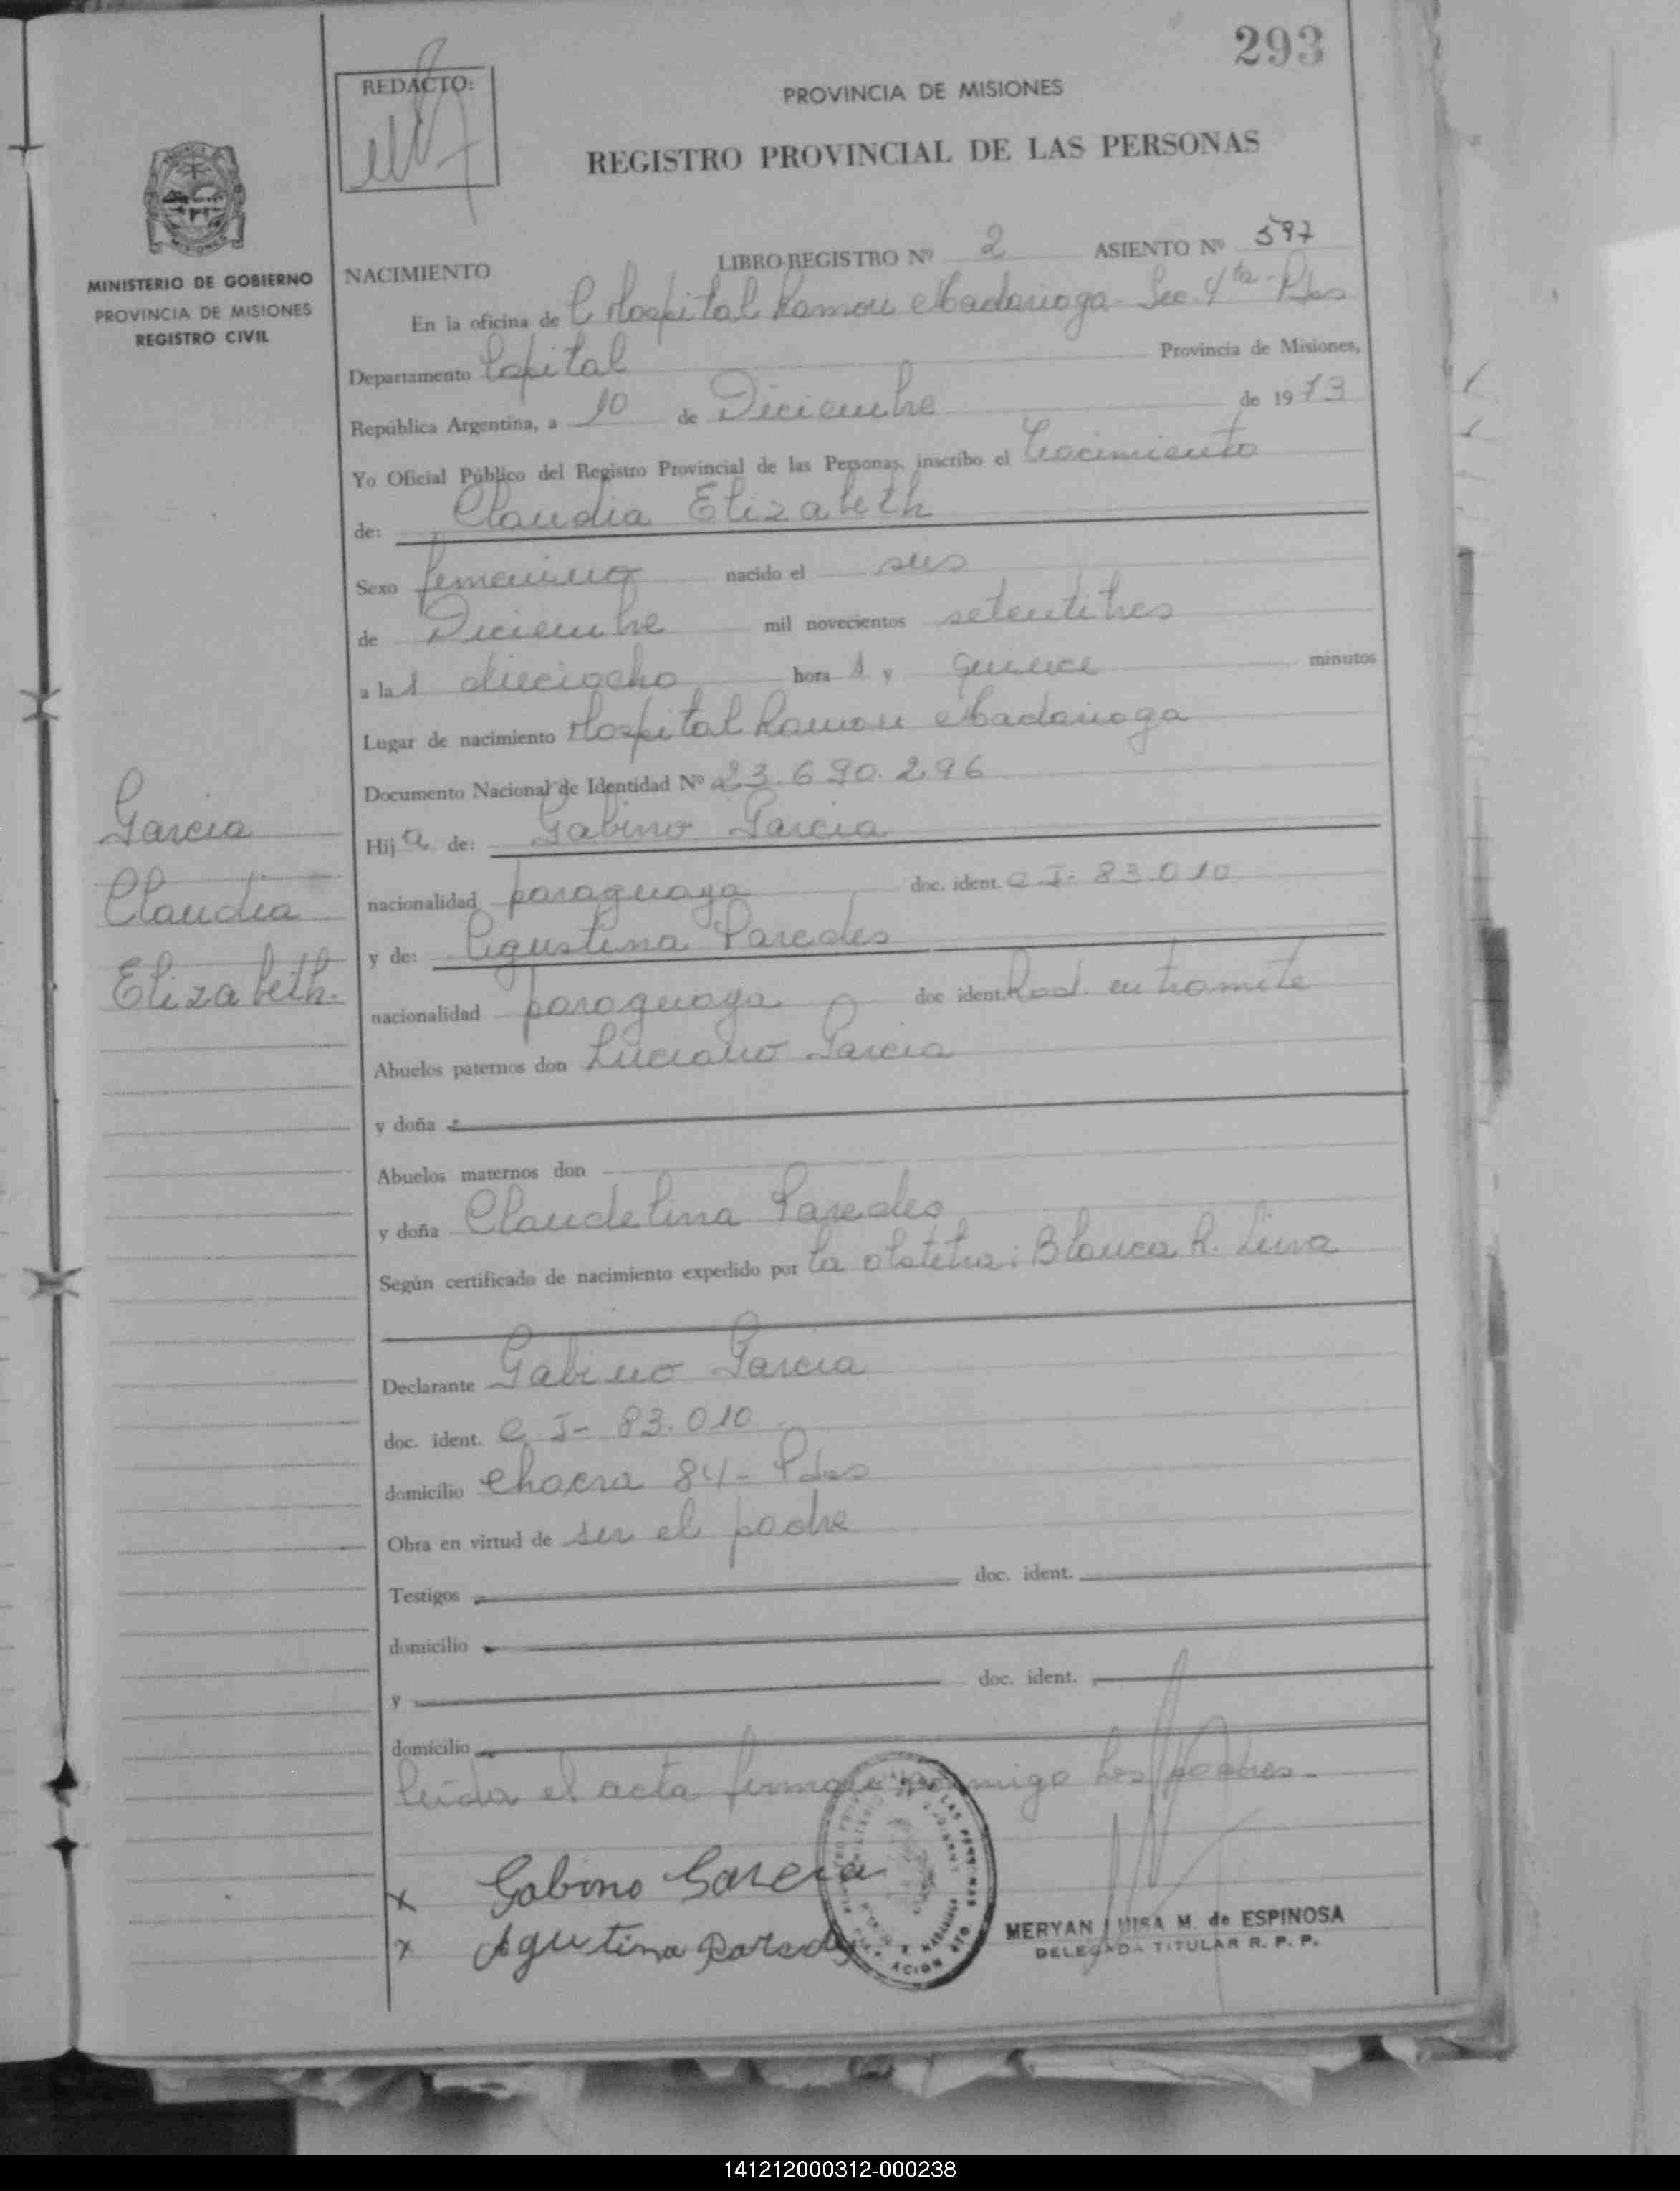 293
REDACTO:
PROVINCIA DE MISIONES
REGISTRO PROVINCIAL DE LAS PERSONAS
MISIONES
MINISTERIO DE GOBIERNO
PROVINCIA DE MISIONES
REGISTRO CIVIL
NACIMIENTO LIBRO REGISTRO Nº 2 ASIENTO Nº 597
En la oficina de Hospital Ramon Madariaga - Sec. 4ta - Pdas
Departamento Capital Provincia de Misiones,
República Argentina, a 10 de Diciembre de 1973
Yo Oficial Público del Registro Provincial de las Personas, inscribo el Nacimiento
de: Claudia Elizabeth
Sexo femenino nacido el seis
de Diciembre mil novecientos setentitres
a las dieciocho horas y quince minutos
Lugar de nacimiento Hospital Ramon Madariaga
Documento Nacional de Identidad Nº 23.690.296
Hija de: Gabino Garcia
nacionalidad paraguaya doc. ident. C I- 83.010
y de: Agustina Paredes
nacionalidad paraguaya doc ident. Rad. en tramite
Abuelos paternos don Luciano Garcia
y doña
Abuelos maternos don
y doña Claudelina Paredes
Según certificado de nacimiento expedido por la obstetra: Blanca R.
Declarante Gabino Garcia
doc. ident. C I- 83.010
domicilio Chacra 84 - Pdas
Obra en virtud de ser el padre
Testigos doc. ident.
domicilio
y doc. ident.
domicilio
Leida el acta firman conmigo los padres.
Garcia
Claudia
Elizabeth.
x Gabino Garcia
x Agustina Paredes
MERYAN LUISA M. de ESPINOSA
DELEGADA TITULAR R. P. P.
141212000312-000238